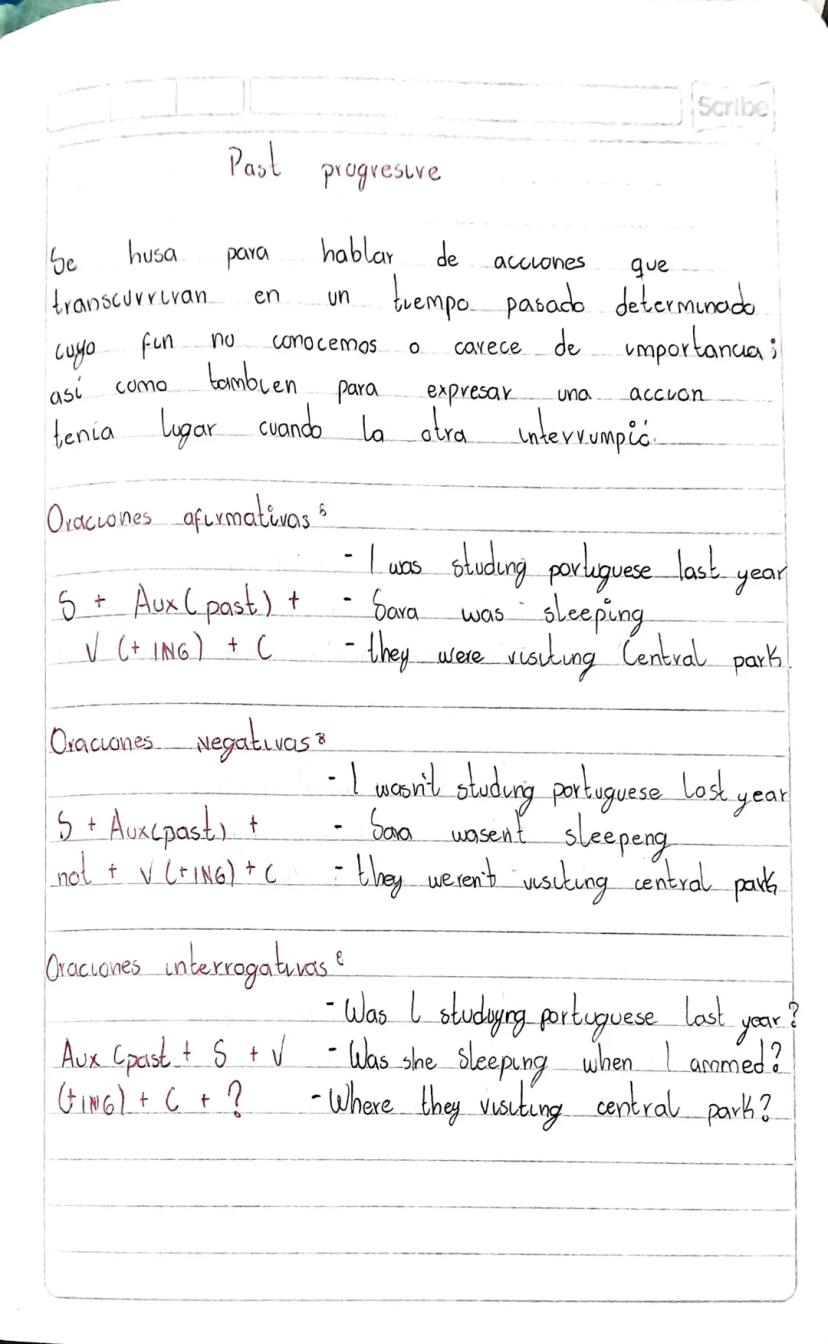 Scribe
Past progresive
Se husa para hablar de acciones que
transcurriran en un tiempo pasado determinado
cuyo fin no conocemos o carece de importancia;
así como tambien para expresar una accion
tenia lugar cuando la otra interrumpió.
Oraciones afirmativas:
- I was studing portuguese last year
S + Aux (past) + - Sara was sleeping
V (+ ING) + C - they were visiting Central park.
Oraciones Negativas:
- I wasn't studing portuguese last year
S + Aux(past) + - Sara wasent sleepeng
not + V (+ING) + C - they weren't visiting central park
Oraciones interrogativas:
- Was I studiyng portuguese last year?
Aux (past + S + V - Was she sleeping when I ammed?
(+ING) + C + ? - Where they visiting central park?